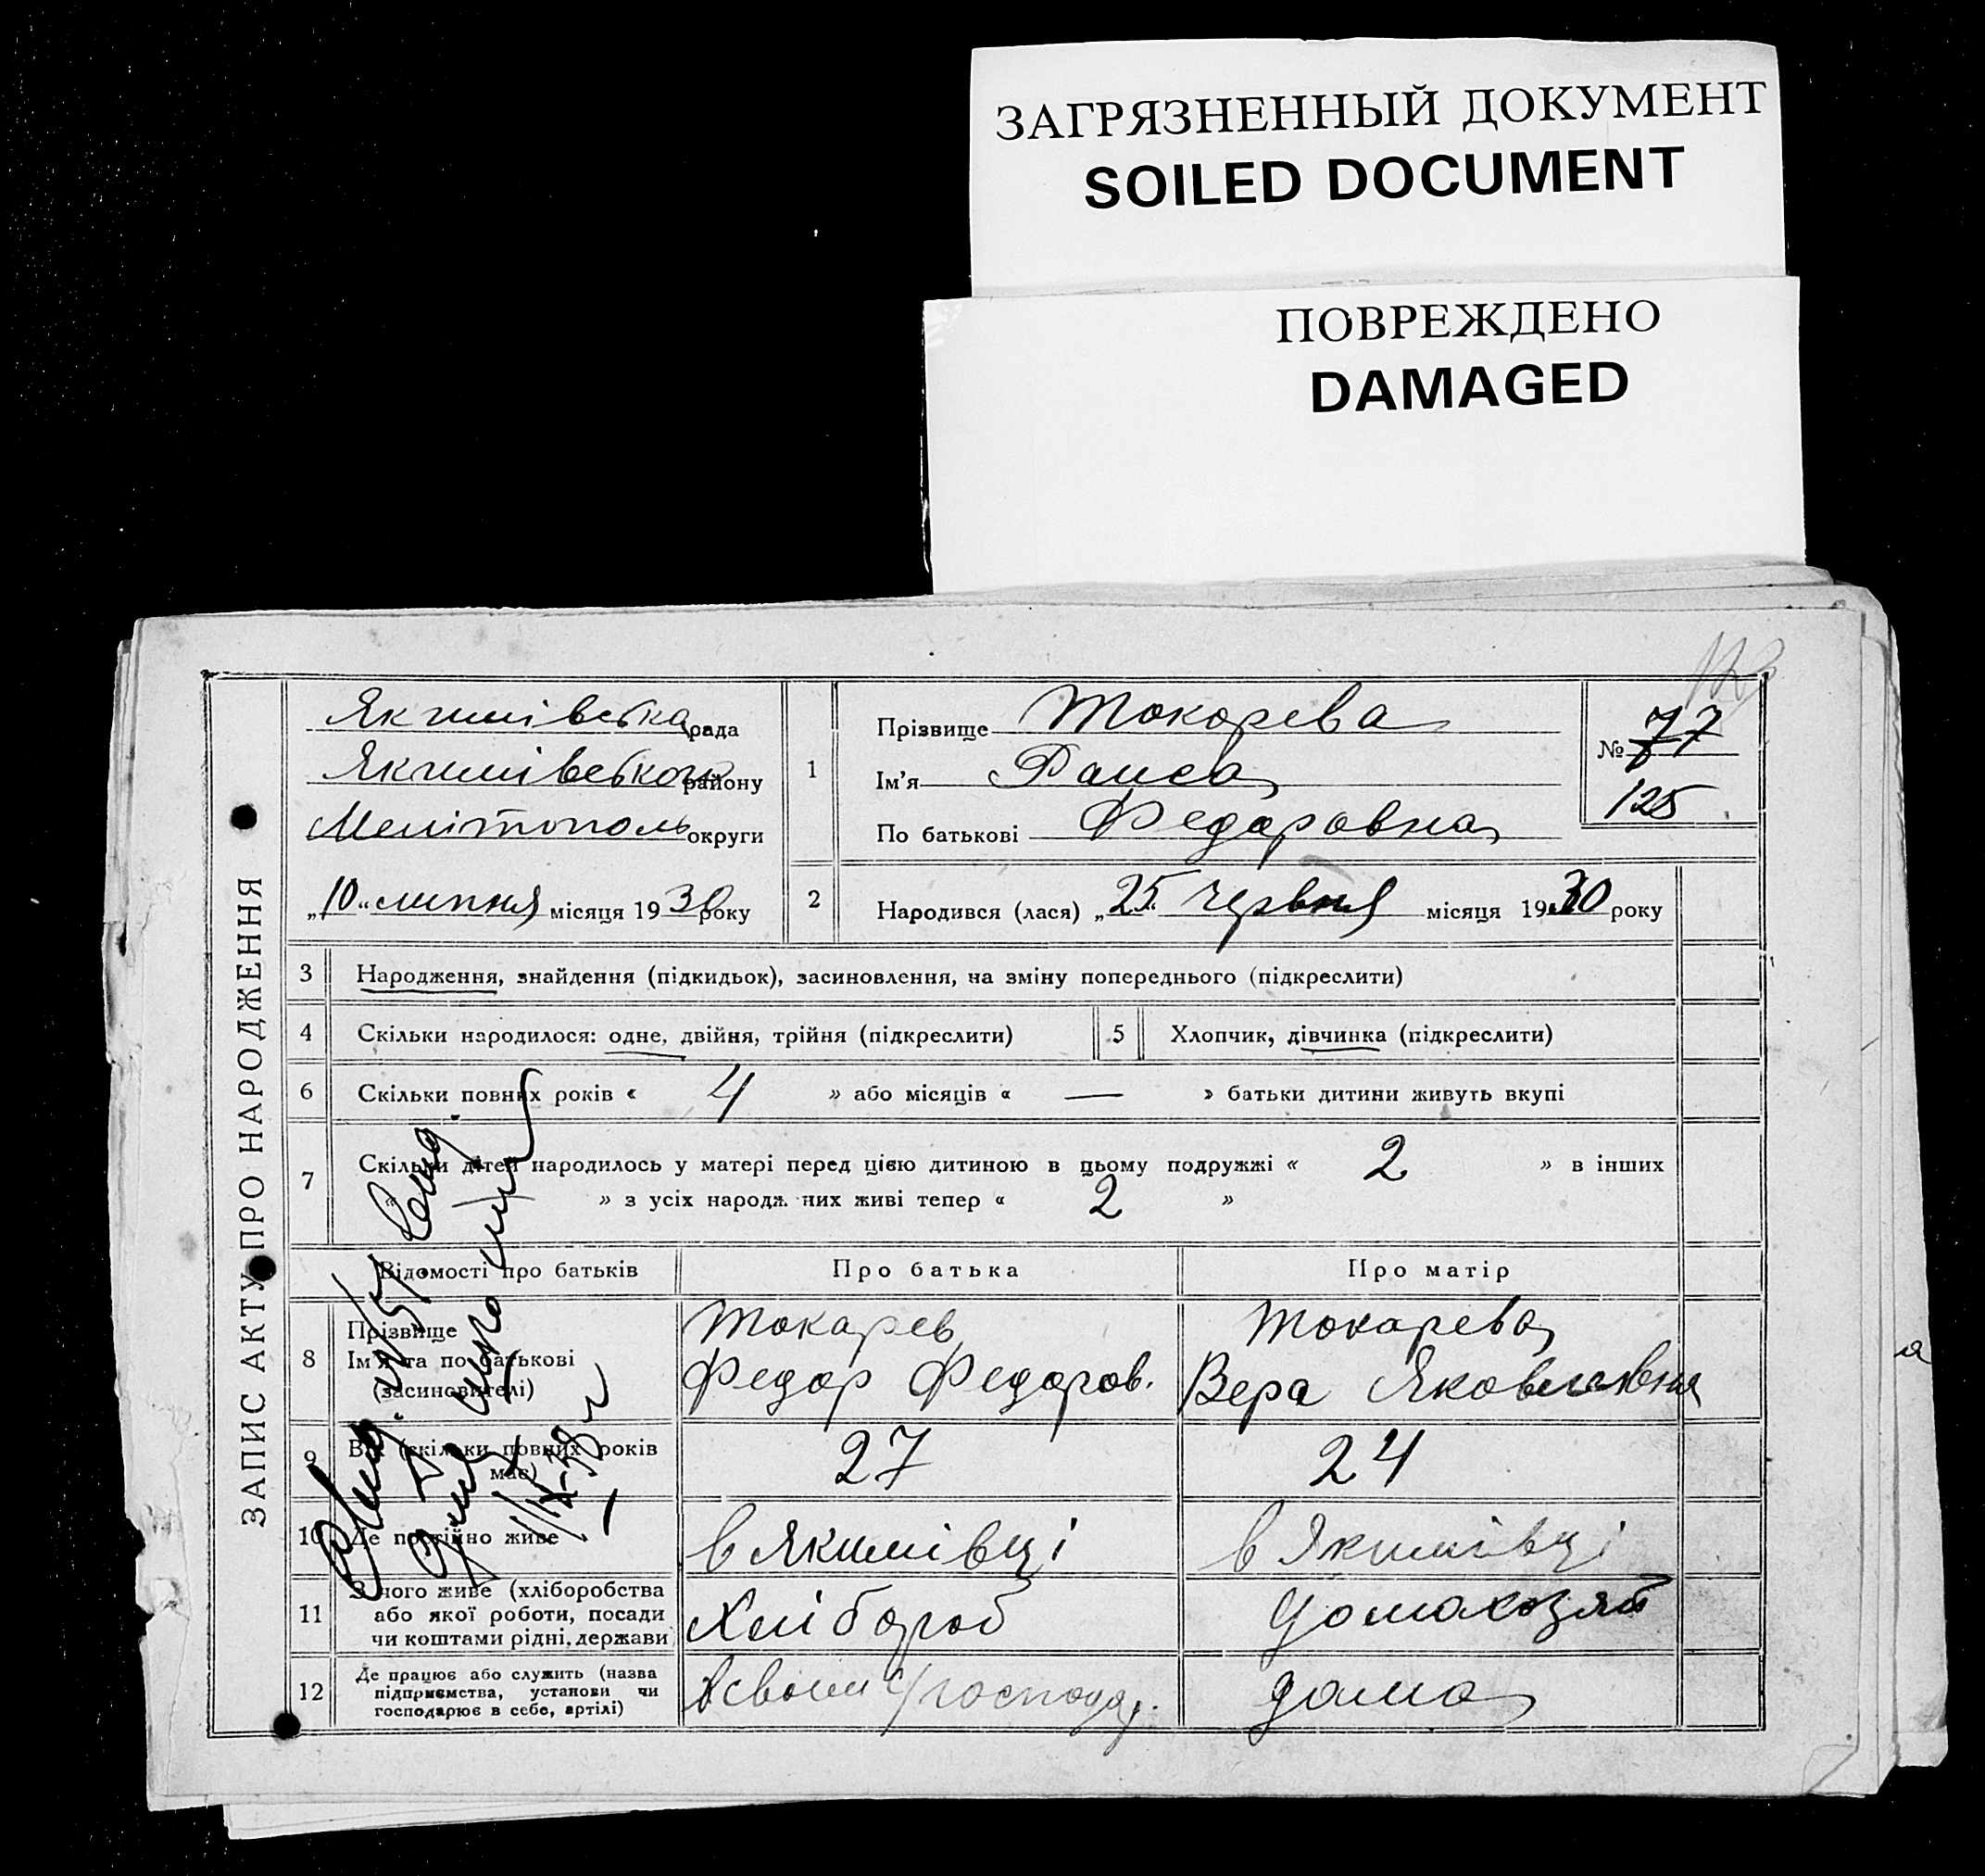 ЗАГРЯЗНЕННЫЙ ДОКУМЕНТ
SOILED DOCUMENT
ПОВРЕЖДЕНО
DAMAGED
ЗАПИС АКТУ ПРО НАРОДЖЕННЯ
Якимівська рада
Якимівського району
Мелітополь округи
„10“ липня місяця 1930 року
1
Прізвище Токарева
Ім'я Раиса
По батькові Федоровна
№ 77
125
2
Народився (лася) „25 червня місяця 1930 року
3 Народження, знайдення (підкидьок), засиновлення, на зміну попереднього (підкреслити)
4 Скільки народилося: одне, двійня, трійня (підкреслити)
5 Хлопчик, дівчинка (підкреслити)
6 Скільки повних років « 4 » або місяців « — » батьки дитини живуть вкупі
7 Скільки дітей народилось у матері перед цією дитиною в цьому подружжі « 2 » в інших
» з усіх народж них живі тепер « 2 »
Відомості про батьків Про батька Про матір
8 Прізвище Токарев Токарева
Ім'я та по батькові Федор Федоров. Вера Яковлевна
(засиновителі)
9 Вік (скільки повних років має) 27 24
10 Де постійно живе в Якимівці в Якимівці
11 З чого живе (хліборобства
або якої роботи, посади
чи коштами рідні, держави Хлібороб Домохозяй
12 Де працює або служить (назва
підприємства, установи чи
господарює в себе, артілі) В своем господ. дома